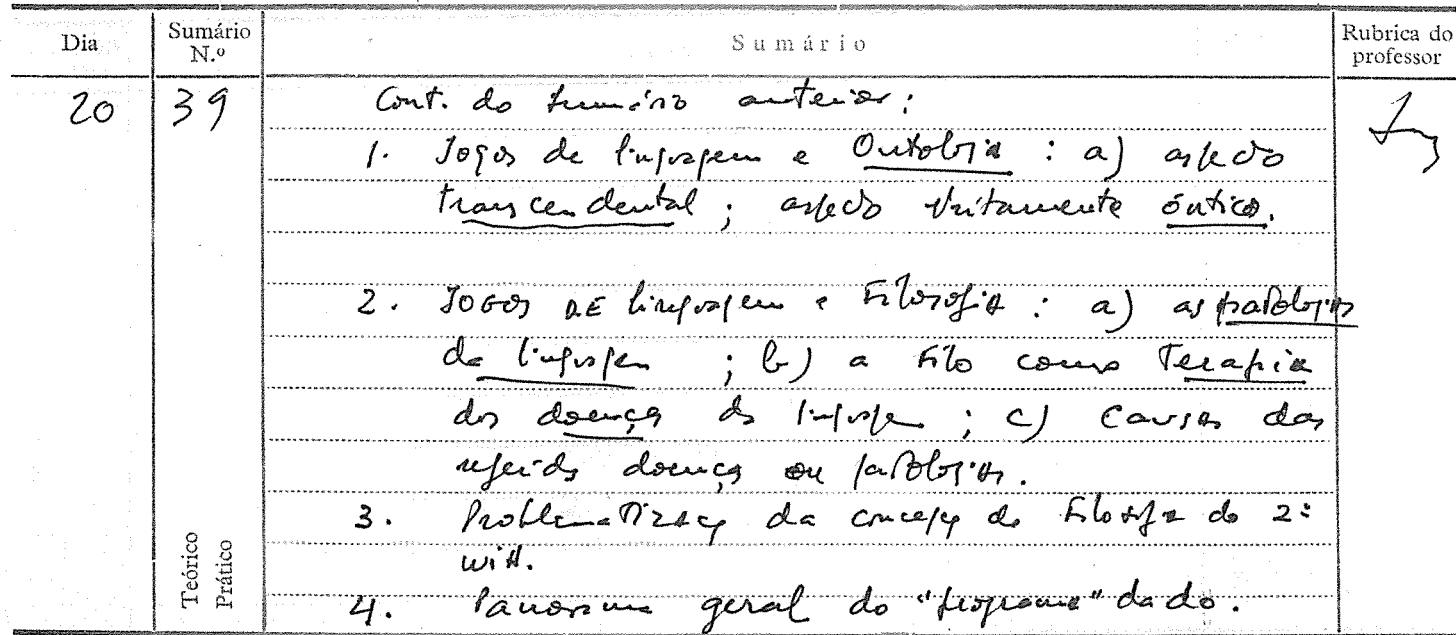 Dia Sumário N.º Sumário Rubrica do professor
20 39 Cont. do sumário anterior:
1. Jogos de linguagem e Ontologia : a) aspecto
transcendental ; aspecto estritamente ôntico.
2. JOGOS DE linguagem e Filosofia : a) as patologias
da linguagem ; b) a Filo como Terapia
das doenças da linguagem ; c) Causas das
referidas doenças ou patologias.
3. Problematização da concepção de Filosofia do 2º
Witt.
4. Panorama geral do "programa" dado.
Teórico
Prático